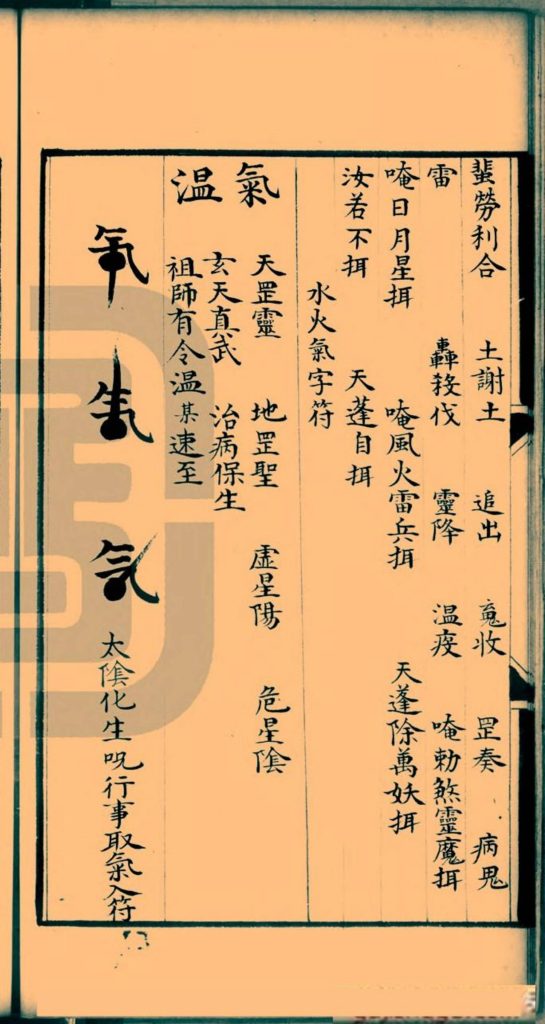 蜚勞利合 土謝土 追出 䰟收 罡奏 病鬼
雷 轟殺伐 靈降 温疫 唵勅煞靈魔揖
唵日月星揖 唵風火雷兵揖 天蓬除萬妖揖
汝若不揖 天蓬自揖
水火氣字符
氣 天罡靈 地罡聖 虚星陽 危星陰
玄天真武 治病保生
温 祖師有令温某速至
太陰化生呪行事取氣入符